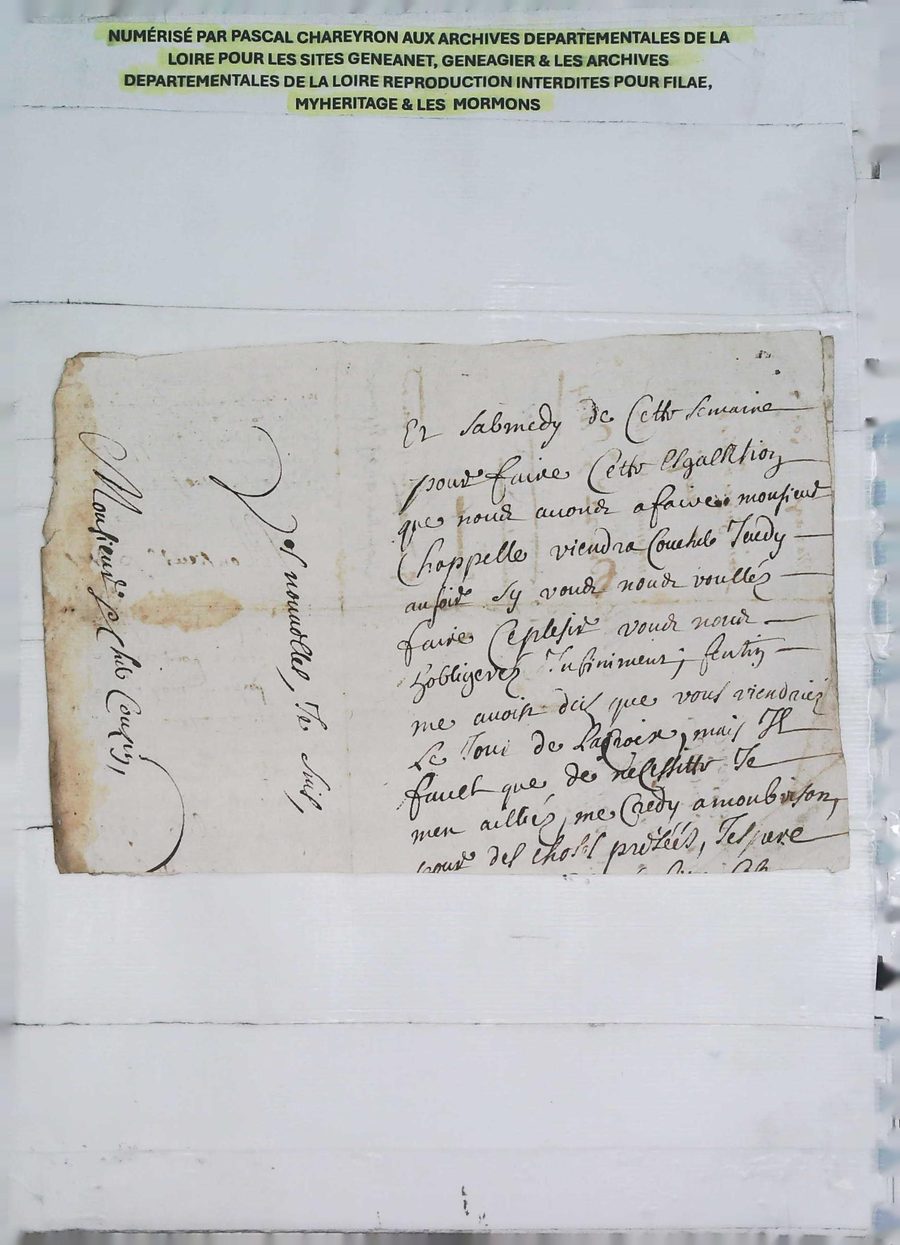 NUMÉRISÉ PAR PASCAL CHAREYRON AUX ARCHIVES DEPARTEMENTALES DE LA
LOIRE POUR LES SITES GENEANET, GENEAGIER & LES ARCHIVES
DEPARTEMENTALES DE LA LOIRE REPRODUCTION INTERDITES POUR FILAE,
MYHERITAGE & LES MORMONS
Et sabmedy de Cette semaine
pour faire Cette
que nous avons a faire monsieur
Chappelle viendra Coucher Jeudy
au soir sy vous nous voullés
faire Ceplesir vous nous
hobligerés Infiniment;
me avoit dit que vous viendriez
Le Jour de Lacroix, mais Il
fault que de nécessitté Je
men aillés, me Credy
pour des choses presées, Jespere
des nouvelles, Je suis,
Monsieur